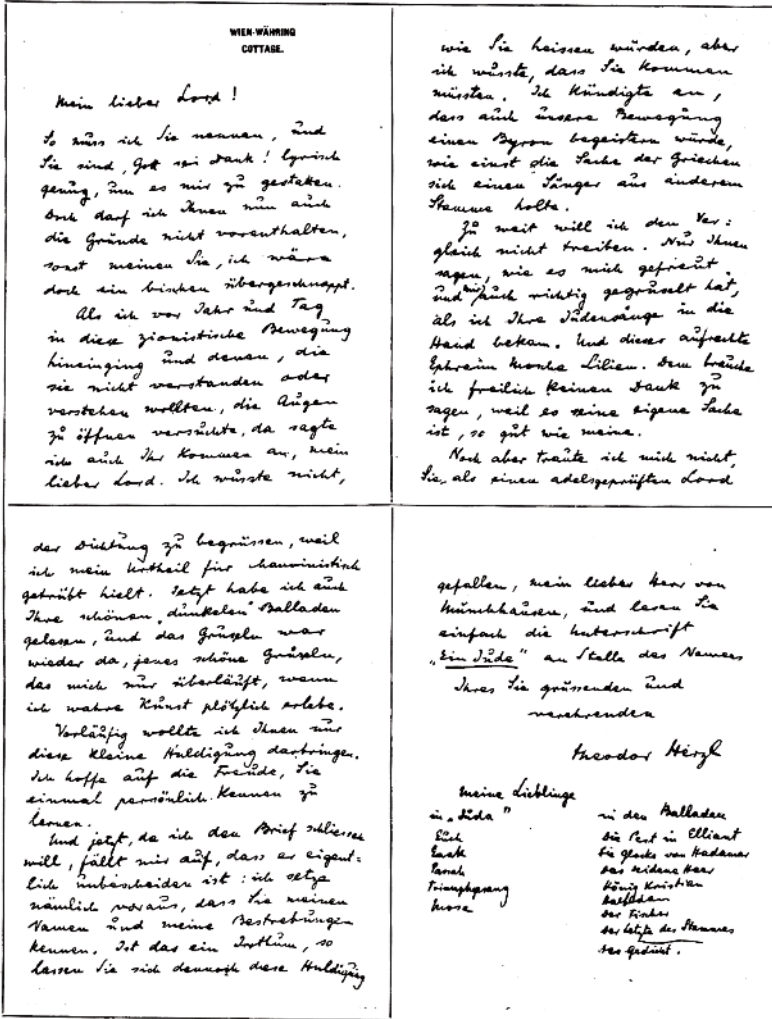 WIEN-WÄHRING
COTTAGE.
Mein lieber Lord!
So muss ich Sie nennen, und
Sie sind, Gott sei Dank! lyrisch
genug, um es mir zu gestatten.
Doch darf ich Ihnen nun auch
die Gründe nicht vorenthalten,
sonst meinen Sie, ich wäre
doch ein bischen übergeschnappt.
Als ich vor Jahr und Tag
in diese zionistische Bewegung
hineinging und denen, die
sie nicht verstanden oder
verstehen wollten, die Augen
zu öffnen versuchte, da sagte
ich auch Ihr Kommen an, mein
lieber Lord. Ich wusste nicht,
wie Sie heissen würden, aber
ich wusste, dass Sie kommen
müssten. Ich kündigte an,
dass auch unsere Bewegung
einen Byron begeistern würde,
wie einst die Sache der Griechen
sich einen Sänger aus anderem
Stamme holte.
Zu weit will ich den Ver:
gleich nicht treiben. Nur Ihnen
sagen, wie es mich gefreut
und auch richtig gegruselt hat,
als ich Ihre Judensänge in die
Hand bekam. Und dieser aufrechte
Ephraim Mosche Lilien. Dem brauche
ich freilich keinen Dank zu
sagen, weil es seine eigene Sache
ist, so gut wie meine.
Noch aber traute ich mich nicht,
Sie, als einen adelsgeprüften Lord
der Dichtung zu begrüssen, weil
ich mein Urtheil für chauvinistisch
getrübt hielt. Jetzt habe ich auch
Ihre schönen „dunkelen" Balladen
gelesen, und das Gruseln war
wieder da, jenes schöne Gruseln,
das mich nur überläuft, wenn
ich wahre Kunst plötzlich erlebe.
Vorläufig wollte ich Ihnen nur
diese kleine Huldigung darbringen.
Ich hoffe auf die Freude, Sie
einmal persönlich kennen zu
lernen.
Und jetzt, da ich den Brief schliessen
will, fällt mir auf, dass er eigent=
lich unbescheiden ist: ich setze
nämlich voraus, dass Sie meinen
Namen und meine Bestrebungen
kennen. Ist das ein Irrthum, so
lassen Sie sich dennoch diese Huldigung
gefallen, mein lieber Herr von
Münchhausen, und lesen Sie
einfach die Unterschrift
„Ein Jude" an Stelle des Namens
Ihres Sie grüssenden und
verehrenden
Theodor Herzl
Meine Lieblinge
in „Juda"
Euch
Passah
Triumphgesang
Mose
in den Balladen
Die Pest in Elliant
Die Glocke von Hadamar
Das seidene Haar
König Kristian
Balladen
Der Fischer
Der Letzte des Stammes
Das Gedicht.